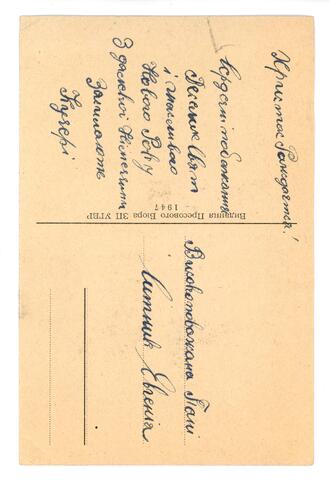 Христос Рождається!
Сердечні побажання
Веселих Свят
і щасливого
Нового Року
З далекої Німеччини
Засилають
Кучері
Видання Пресового Бюра ЗП УГВР
1947
Високоповажана Пані
Литник Евгенія